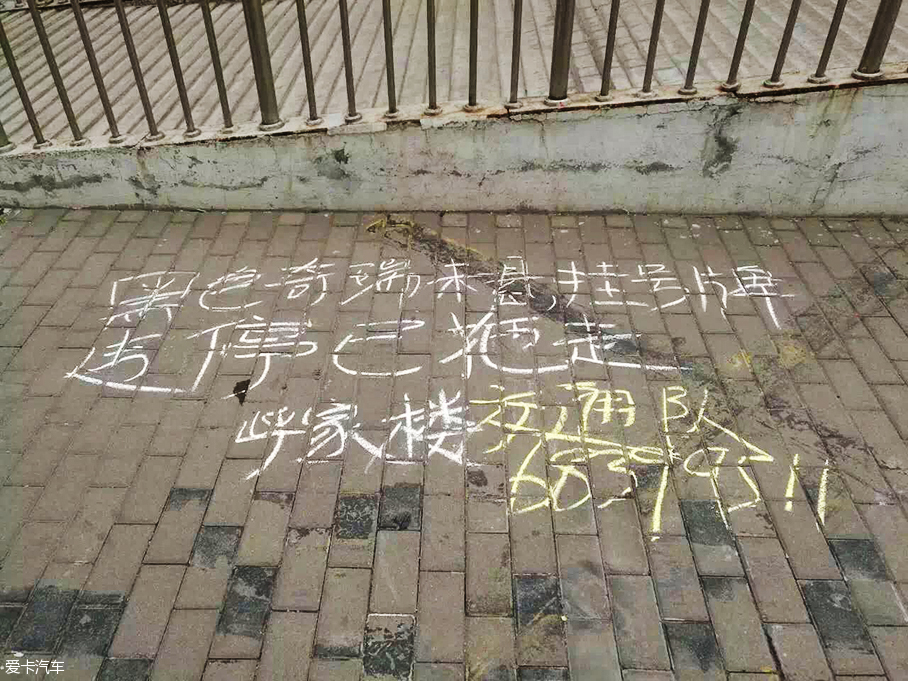 黑色奇瑞未悬挂号牌
违停已拖走
呼家楼交通队
68399311
爱卡汽车